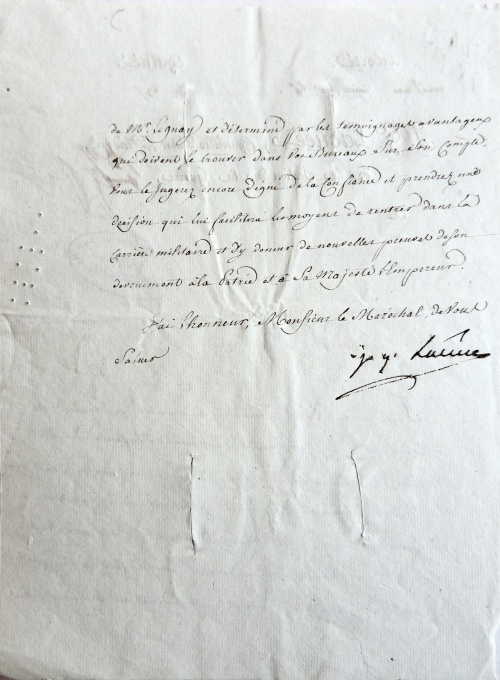 de Mr. Lequoy et déterminé par les témoignages avantageux
que doivent se trouver dans vos Bureaux sur son Compte.
vous le jugerez encore digne de la Confiance et prendrez une
décision qui lui facilitera les moyens de rentrer dans la
Carrière militaire et d'y donner de nouvelles preuves de son
devouement à la Patrie et à Sa Majesté l'Empereur.
J'ai l'honneur, Monsieur le Maréchal, de vous
Saluer